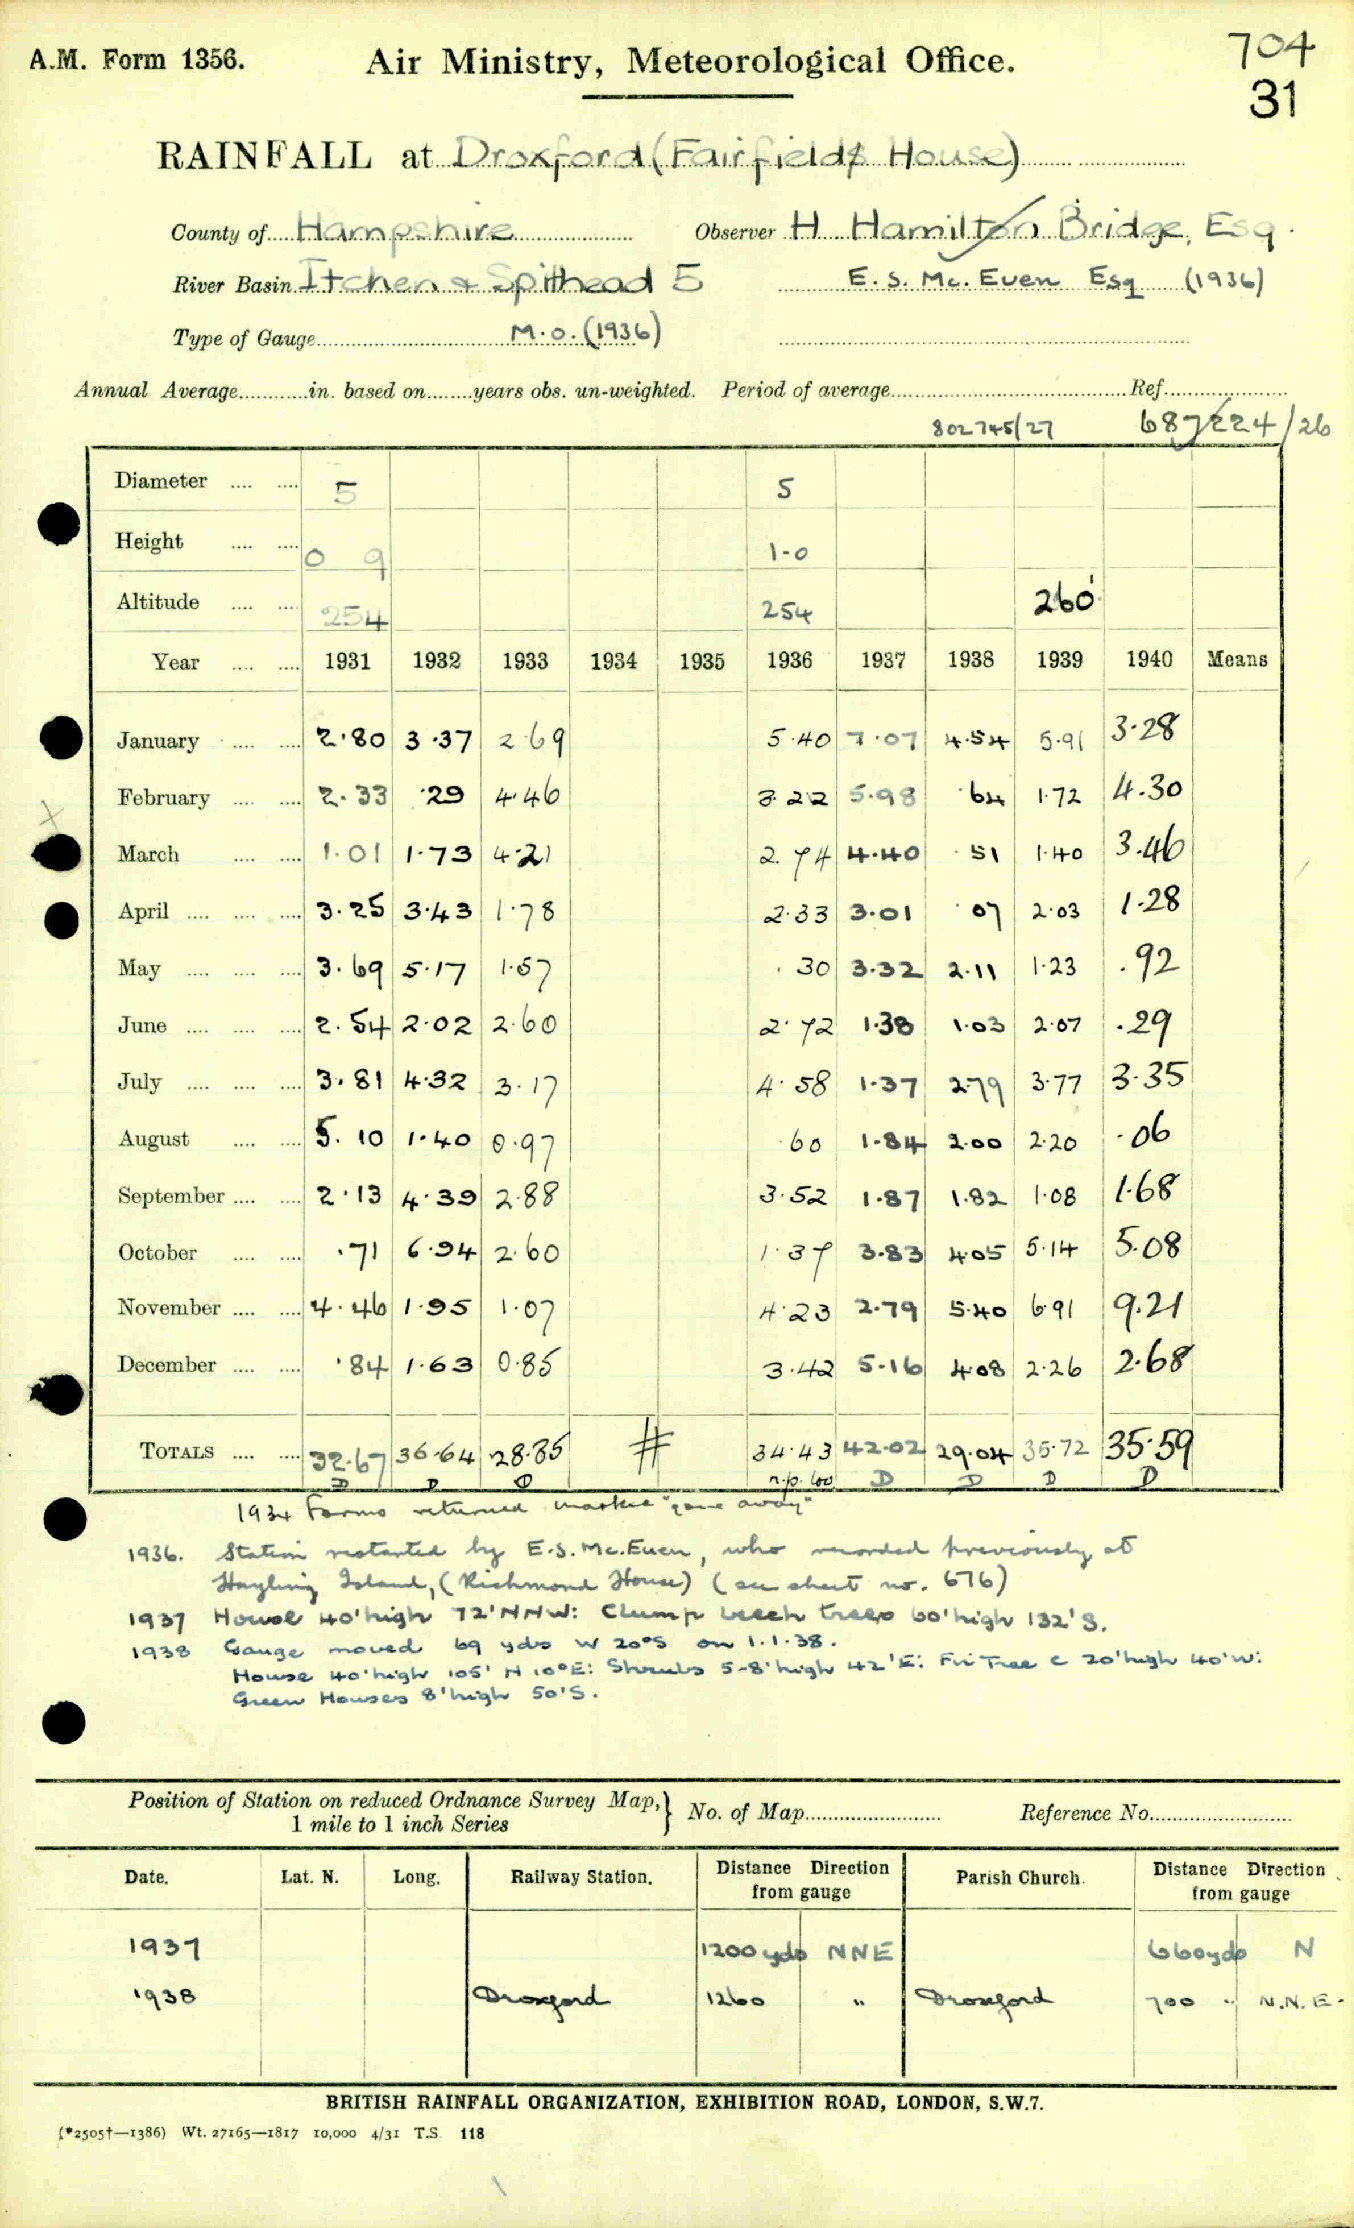 A.M. Form 1356. Air Ministry, Meteorological Office. 704
31
RAINFALL at Droxford (Fairfields House)
County of Hampshire Observer H Hamilton Bridge, Esq.
River Basin Itchen & Spithead 5 E. S. Mc. Euen Esq (1936)
Type of Gauge M.O. (1936)
Annual Average in. based on years obs. un-weighted. Period of average Ref.
802745/27 687224/26
Diameter 5 5
Height 0 9 1-0
Altitude 254 254 260'
Year 1931 1932 1933 1934 1935 1936 1937 1938 1939 1940 Means
January 2.80 3.37 2.69 5.40 7.07 4.54 5.91 3.28
February 2.33 .29 4.46 3.22 5.98 .64 1.72 4.30
March 1.01 1.73 4.21 2.74 4.40 .51 1.40 3.46
April 3.25 3.43 1.78 2.33 3.01 .07 2.03 1.28
May 3.69 5.17 1.57 .30 3.32 2.11 1.23 .92
June 2.54 2.02 2.60 2.72 1.38 1.03 2.07 .29
July 3.81 4.32 3.17 4.58 1.37 2.79 3.77 3.35
August 5.10 1.40 0.97 .60 1.84 2.00 2.20 .06
September 2.13 4.39 2.88 3.52 1.87 1.82 1.08 1.68
October .71 6.94 2.60 1.37 3.83 4.05 5.14 5.08
November 4.46 1.95 1.07 4.23 2.79 5.40 6.91 9.21
December .84 1.63 0.85 3.42 5.16 4.08 2.26 2.68
TOTALS 32.67 36.64 28.85 # 34.43 42.02 29.04 35.72 35.59
D D D n.p. D D D D
1934 Forms returned marked "gone away"
1936. Station restarted by E.S. Mc.Euen, who recorded previously at
Hayling Island, (Richmond House) (see sheet no. 676)
1937 House 40' high 72' NNW: Clump beech trees 60' high 132' S.
1938 Gauge moved 69 yds W 20°S on 1.1.38.
House 40' high 105' N 10°E: Shrubs 5-8' high 42' E: Fir Tree c 20' high 40' W:
Green Houses 8' high 50' S.
Position of Station on reduced Ordnance Survey Map, } No. of Map Reference No.
1 mile to 1 inch Series
Date. Lat. N. Long. Railway Station. Distance Direction from gauge Parish Church. Distance Direction from gauge
1937 1200 yds NNE 660 yds N
1938 Droxford 1260 " Droxford 700 " N.N.E.
BRITISH RAINFALL ORGANIZATION, EXHIBITION ROAD, LONDON, S.W.7.
(*2505†—1386) Wt. 27165—1817 10,000 4/31 T.S. 118